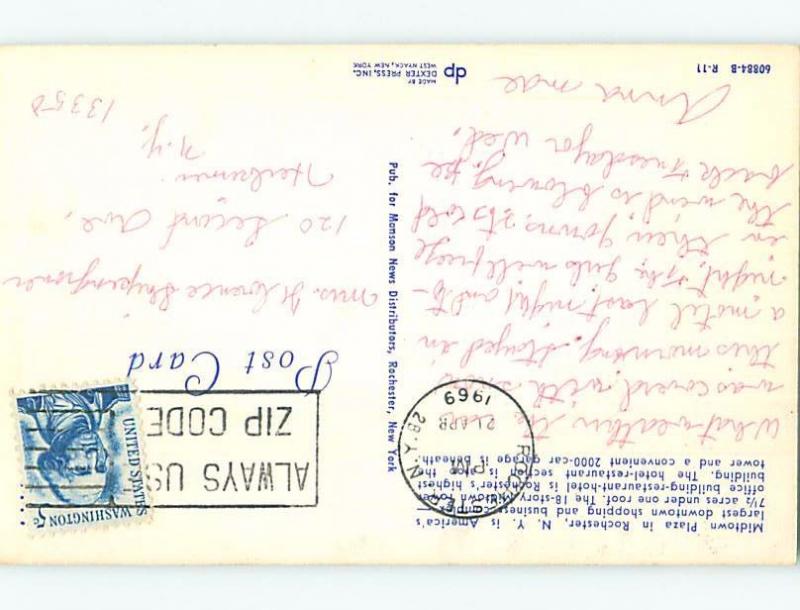 Midtown Plaza in Rochester, N. Y. is America's
largest downtown shopping and business complex —
7½ acres under one roof. The 18-story Midtown Tower
office building-restaurant-hotel is Rochester's highest
building. The hotel-restaurant section is atop the
tower and a convenient 2000-car garage is beneath.
What weather the
was coverd with
this morning. stayed in
a motel last night and to-
night. The gals will freeze
in their gowns. its cold
the wind is blowing, be
back Tuesday or Wed.
Anna mae
60884-B R-11
ROCHESTER, N.Y.
21 APR
PM
1969
2B
ALWAYS USE
ZIP CODE
UNITED STATES
WASHINGTON 5c
Post Card
Mrs. Florence
120 Second Ave.
Herkimer
N.Y.
13350
Pub. for Manson News Distributors, Rochester, New York
dp
MADE BY
DEXTER PRESS, INC.
WEST NYACK, NEW YORK